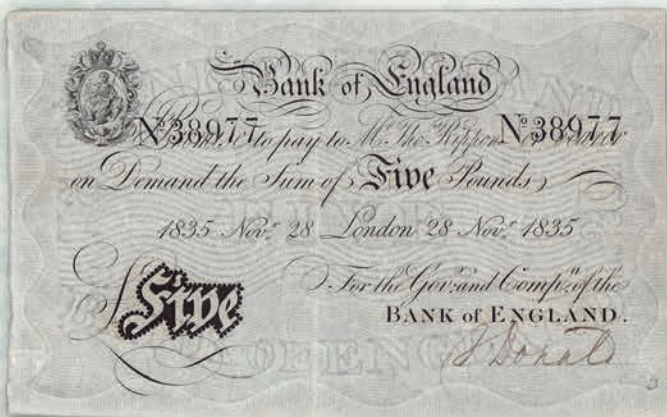 Bank of England
Nº 38977 Nº 38977
I Promise to pay to Mr. Tho.s Rippon or bearer
on Demand the Sum of Five Pounds
1835 Nov.r 28 London 28 Nov.r 1835
For the Gov.r and Comp.a of the
£Five
BANK of ENGLAND.